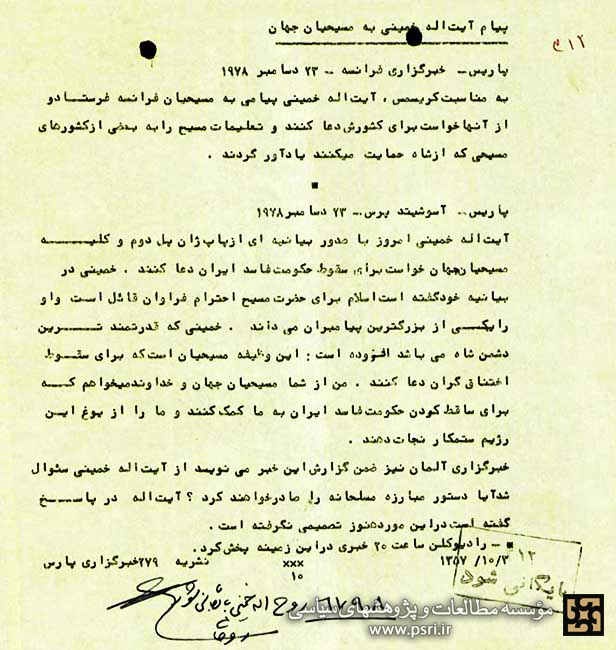 پیام آیت‌اله خمینی به مسیحیان جهان
۱۲م
پاریس – خبرگزاری فرانسه – ۲۳ دسامبر ۱۹۷۸
به مناسبت کریسمس، آیت‌اله خمینی پیامی به مسیحیان فرانسه فرستاد و
از آنها خواست برای کشورش دعا کنند و تعلیمات مسیح را به بعضی از کشورهای
مسیحی که از شاه حمایت میکنند یادآور گردند .
پاریس – آسوشیتد پرس – ۲۳ دسامبر ۱۹۷۸
آیت‌اله خمینی امروز با صدور بیانیه ای از پاپ ژان پل دوم و کلیه
مسیحیان جهان خواست برای سقوط حکومت فاسد ایران دعا کنند . خمینی در
بیانیه خود گفته است اسلام برای حضرت مسیح احترام فراوان قائل است و او
را یکی از بزرگترین پیامبران می داند . خمینی که قدرتمند ترین
دشمن شاه می باشد افزوده است : این وظیفه مسیحیان است که برای سقوط
اختناق گران دعا کنند . من از شما مسیحیان جهان و خداوند میخواهم که
برای ساقط کودن حکومت فاسد ایران به ما کمک کنند و ما را از یوغ این
رژیم ستمکار نجات دهند .
خبرگزاری آلمان نیز ضمن گزارش این خبر می نویسد از آیت‌اله خمینی سئوال
شد آیا دستور مبارزه مسلحانه را صادر خواهند کرد ؟ آیت‌اله در پاسخ
گفته است در این مورد هنوز تصمیمی نگرفته است .
– رادیو کلن ساعت ۲۰ خبری در این زمینه پخش کرد .
۱۳۵۷/۱۰/۳ xxx نشریه ۲۷۹ خبرگزاری پارس
۱۰
۱۲
بایگانی شود
روح اله خمینی بایگانی شود
مؤسسه مطالعات و پژوهشهای سیاسی
www.psri.ir